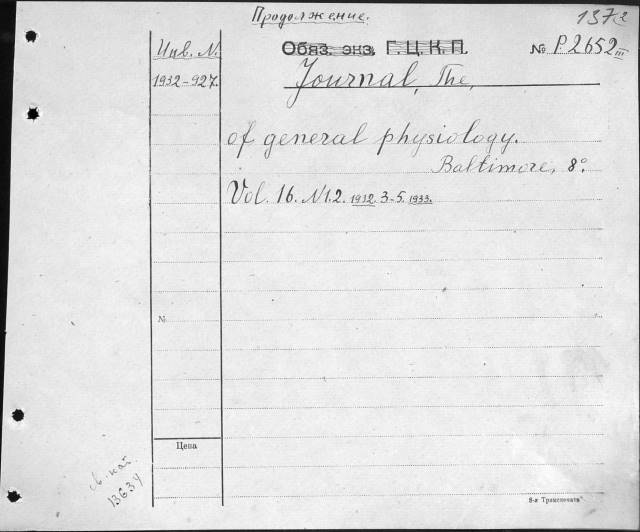 Продолжение.
137²
Инв. N.
Обяз. экз. Г.Ц.К.П.
№ P.2652 III
1932-927.
Journal, The,
of general physiology.
Baltimore, 8°.
Vol. 16. N1.2. 1932. 3-5. 1933.
N.
Цена
св. кат.
13634
8-я Транспечать